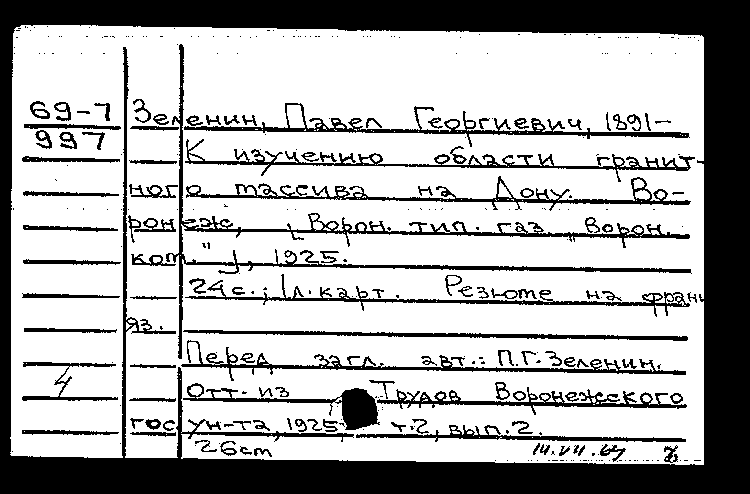 69-7 Зеленин, Павел Георгиевич, 1891-
997 К изучению области гранит-
ного массива на Дону. Во-
ронеж, [Ворон. тип. газ. "Ворон.
ком."], 1925.
24 с.; 1 л. карт. Резюме на франц
яз.
Перед загл. авт.: П.Г. Зеленин.
4 Отт. из Трудов Воронежского
гос. ун-та, 1925, т.2, вып.2.
26 cm 14.VII.69